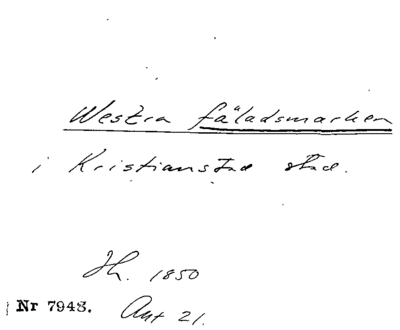 Westra fäladsmarken
i Kristianstad stad.
Jh. 1850
Nr 7948. Ant 21.